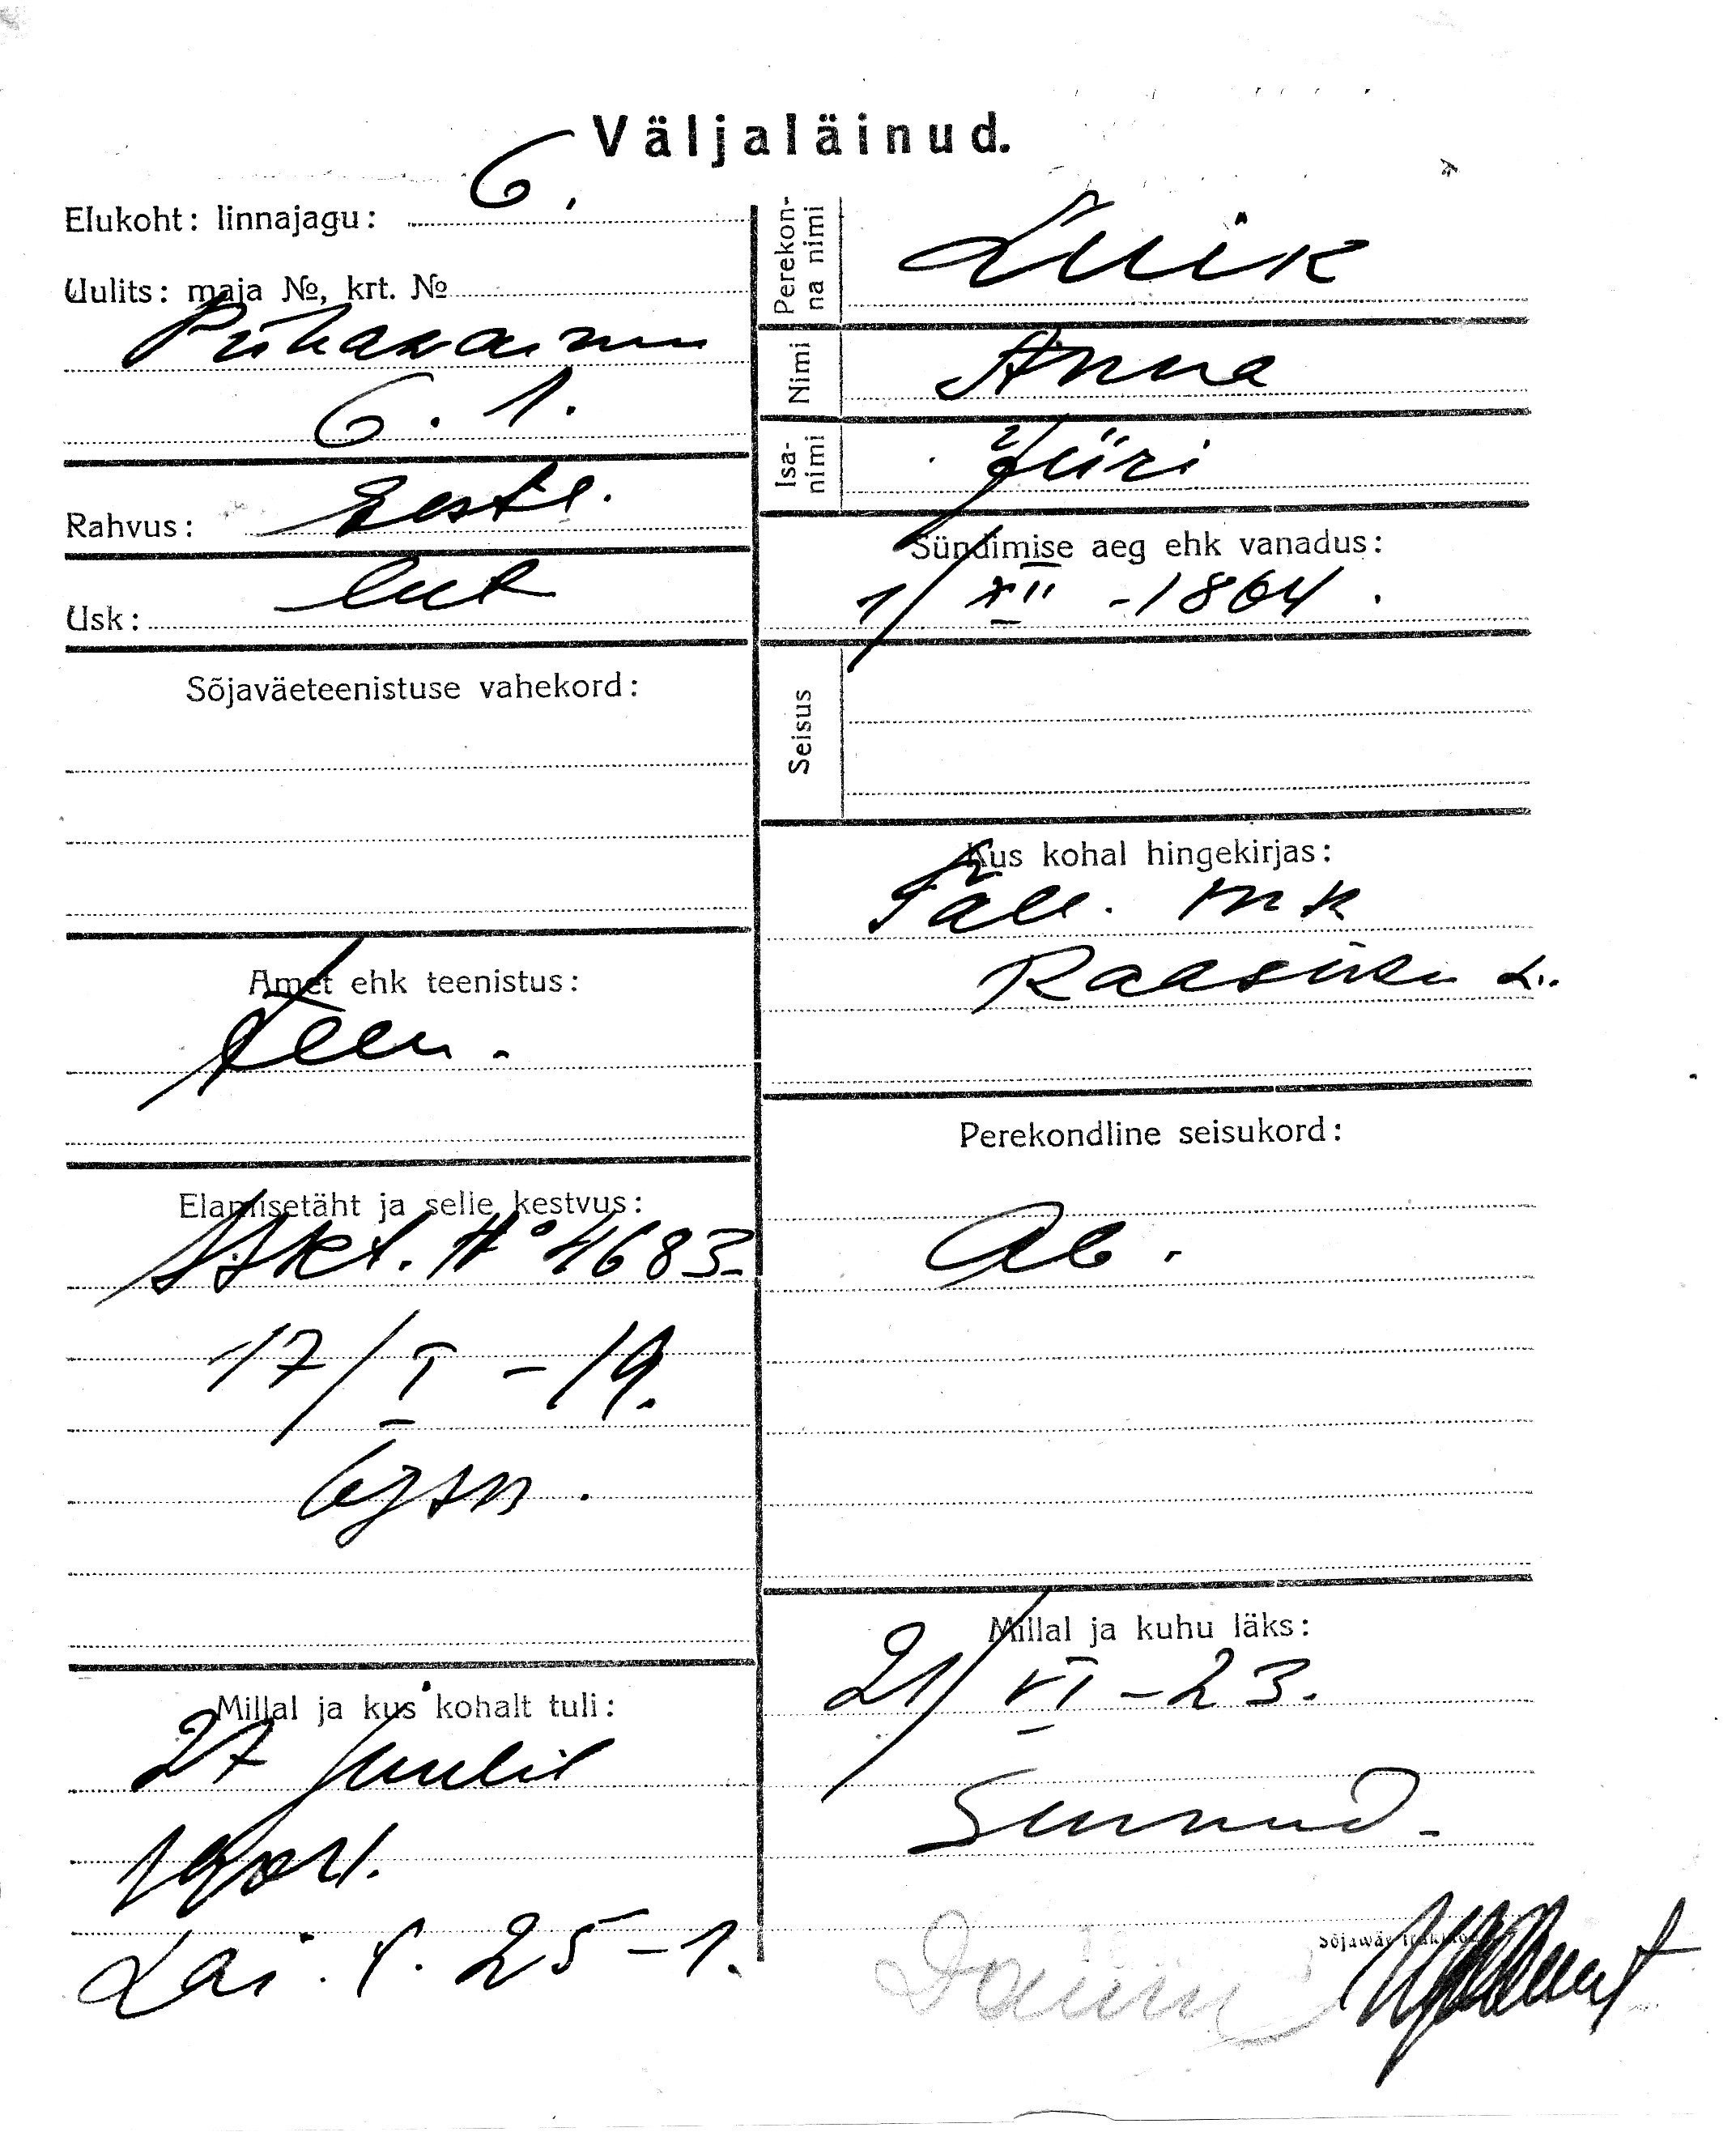 Väljaläinud.
Elukoht: linnajagu: 6.
Uulits: maja №, krt. №
Pühavaimu
6. 1.
Rahvus: Eestl.
Usk: lut
Sõjaväeteenistuse vahekord:
Amet ehk teenistus:
teen.
Elamisetäht ja selle kestvus:
№ 4683
17/I - 19.
6 jsk.
Millal ja kus kohalt tuli:
27 juulil
Lai t. 25-1.
Perekon-
na nimi
Luik
Nimi
Anna
Isa-
nimi
Jüri
Sündimise aeg ehk vanadus:
1/XII - 1864.
Seisus
Kus kohal hingekirjas:
Tall. mk
Raasiku v.
Perekondline seisukord:
Ab.
Millal ja kuhu läks:
21/VI - 23.
Surnud.